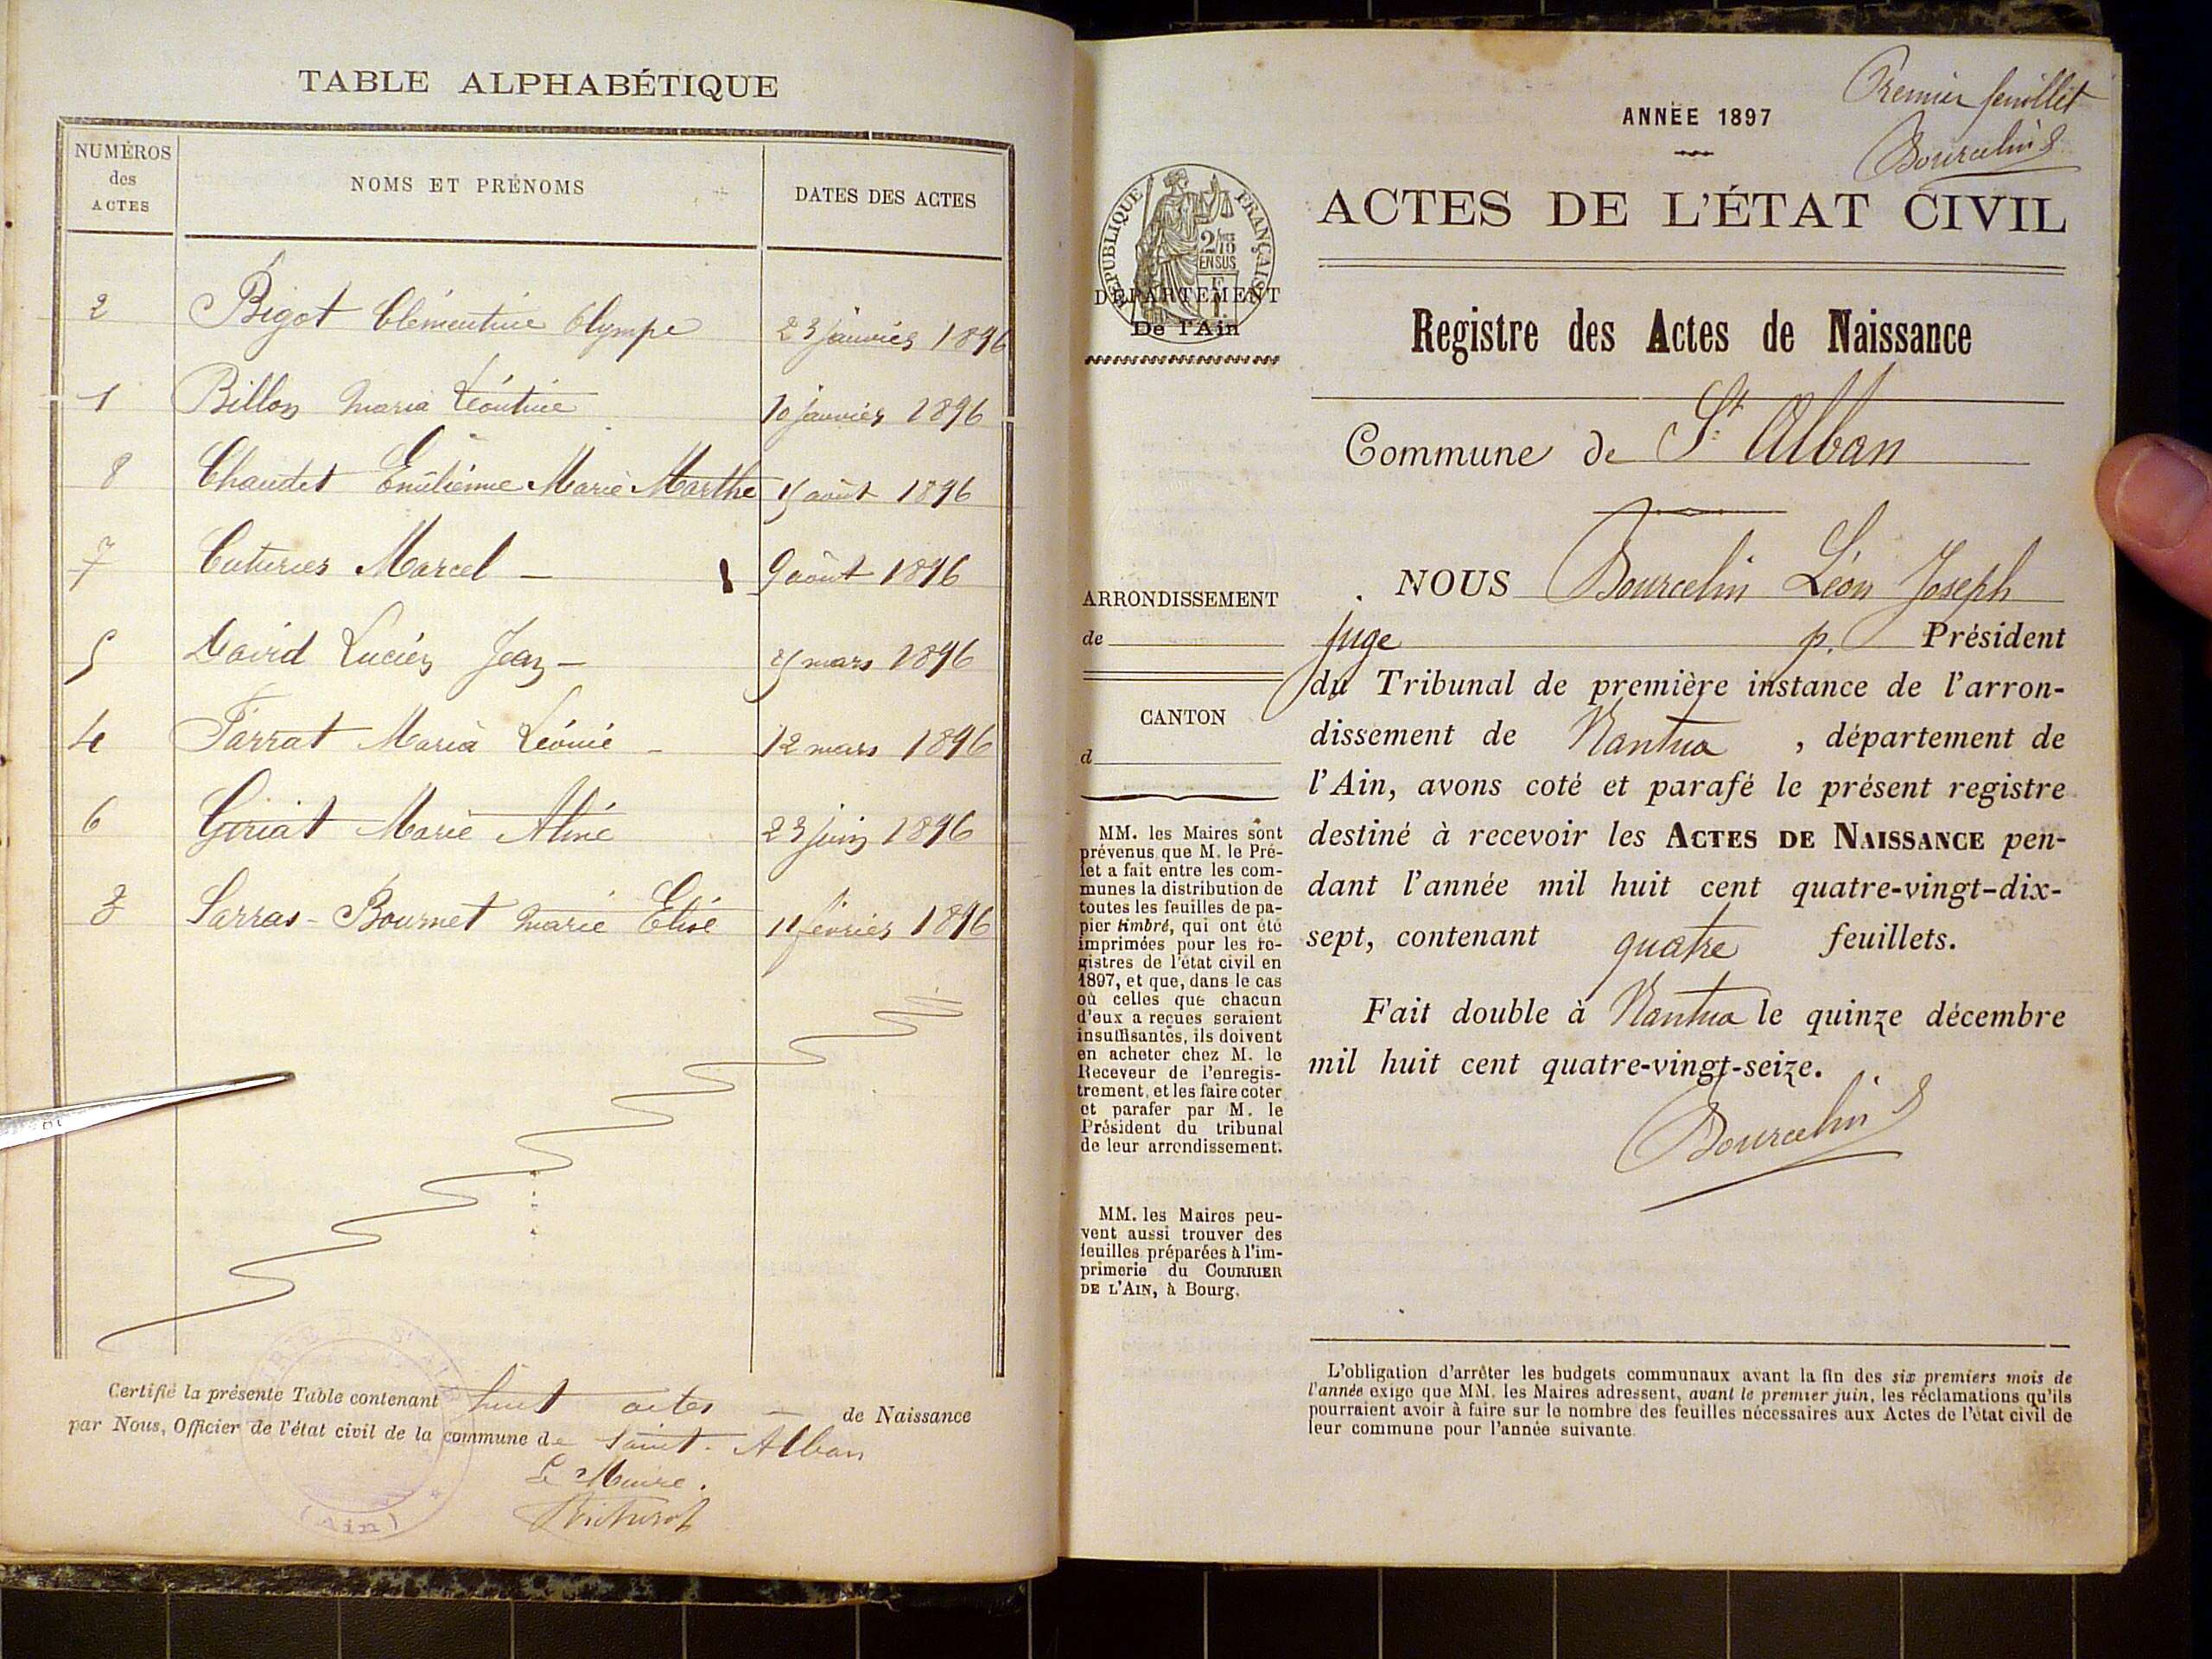 TABLE ALPHABÉTIQUE
NUMÉROS des ACTES
NOMS ET PRÉNOMS
DATES DES ACTES
2 Bigot Clémentine Olympe 23 janvier 1896
1 Billon Maria Léontine 10 janvier 1896
8 Chaudet Émilienne Marie Marthe août 1896
7 Cuturier Marcel — 9 août 1896
5 David Lucien Jean — mars 1896
4 Farrat Maria Léonie — 12 mars 1896
6 Goriat Marie Aline 23 juin 1896
3 Sarras-Bournet Marie Elise 11 février 1896
Certifié la présente Table contenant huit actes — de Naissance
par Nous, Officier de l'état civil de la commune de Saint-Alban
Le Maire.
(Ain)
Premier feuillet
Bourcelin
ANNÉE 1897
ACTES DE L'ÉTAT CIVIL
RÉPUBLIQUE FRANÇAISE
2/10
EN SUS
DÉPARTEMENT
De l'Ain
Registre des Actes de Naissance
Commune de St Alban
ARRONDISSEMENT
de
CANTON
d
MM. les Maires sont
prévenus que M. le Pré-
fet a fait entre les com-
munes la distribution de
toutes les feuilles de pa-
pier timbré, qui ont été
imprimées pour les re-
gistres de l'état civil en
1897, et que, dans le cas
où celles que chacun
d'eux a reçues seraient
insuffisantes, ils doivent
en acheter chez M. le
Receveur de l'enregis-
trement, et les faire coter
et parafer par M. le
Président du tribunal
de leur arrondissement.
MM. les Maires peu-
vent aussi trouver des
feuilles préparées à l'im-
primerie du COURRIER
DE L'AIN, à Bourg.
NOUS Bourcelin Léon Joseph
juge p. Président
du Tribunal de première instance de l'arron-
dissement de Nantua, département de
l'Ain, avons coté et parafé le présent registre
destiné à recevoir les ACTES DE NAISSANCE pen-
dant l'année mil huit cent quatre-vingt-dix-
sept, contenant quatre feuillets.
Fait double à Nantua le quinze décembre
mil huit cent quatre-vingt-seize.
Bourcelin
L'obligation d'arrêter les budgets communaux avant la fin des six premiers mois de
l'année exige que MM. les Maires adressent, avant le premier juin, les réclamations qu'ils
pourraient avoir à faire sur le nombre des feuilles nécessaires aux Actes de l'état civil de
leur commune pour l'année suivante.